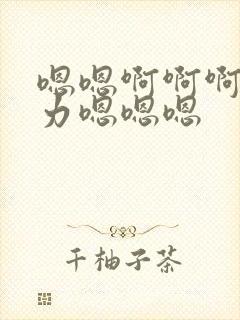 嗯嗯啊啊啊
力嗯嗯嗯
千柚子茶